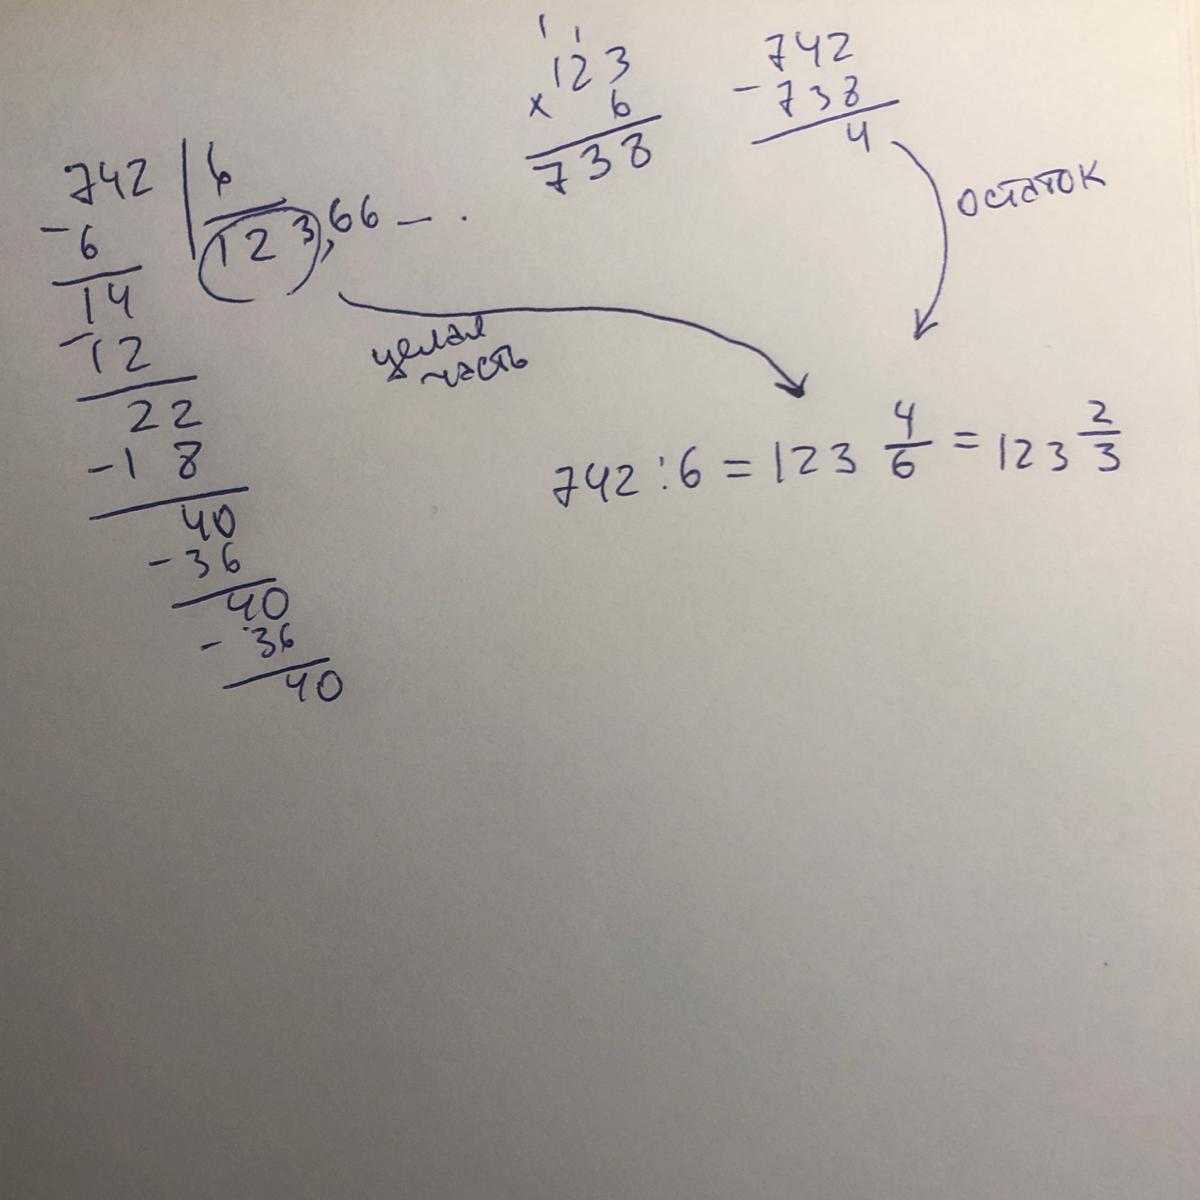 742 | 6
- 6
123,66 - .
14
- 12
22
- 18
40
- 36
40
- 36
40
1 1
123
x 6
738
742
- 738
4
остаток
целая
часть
742 : 6 = 123 4/6 = 123 2/3